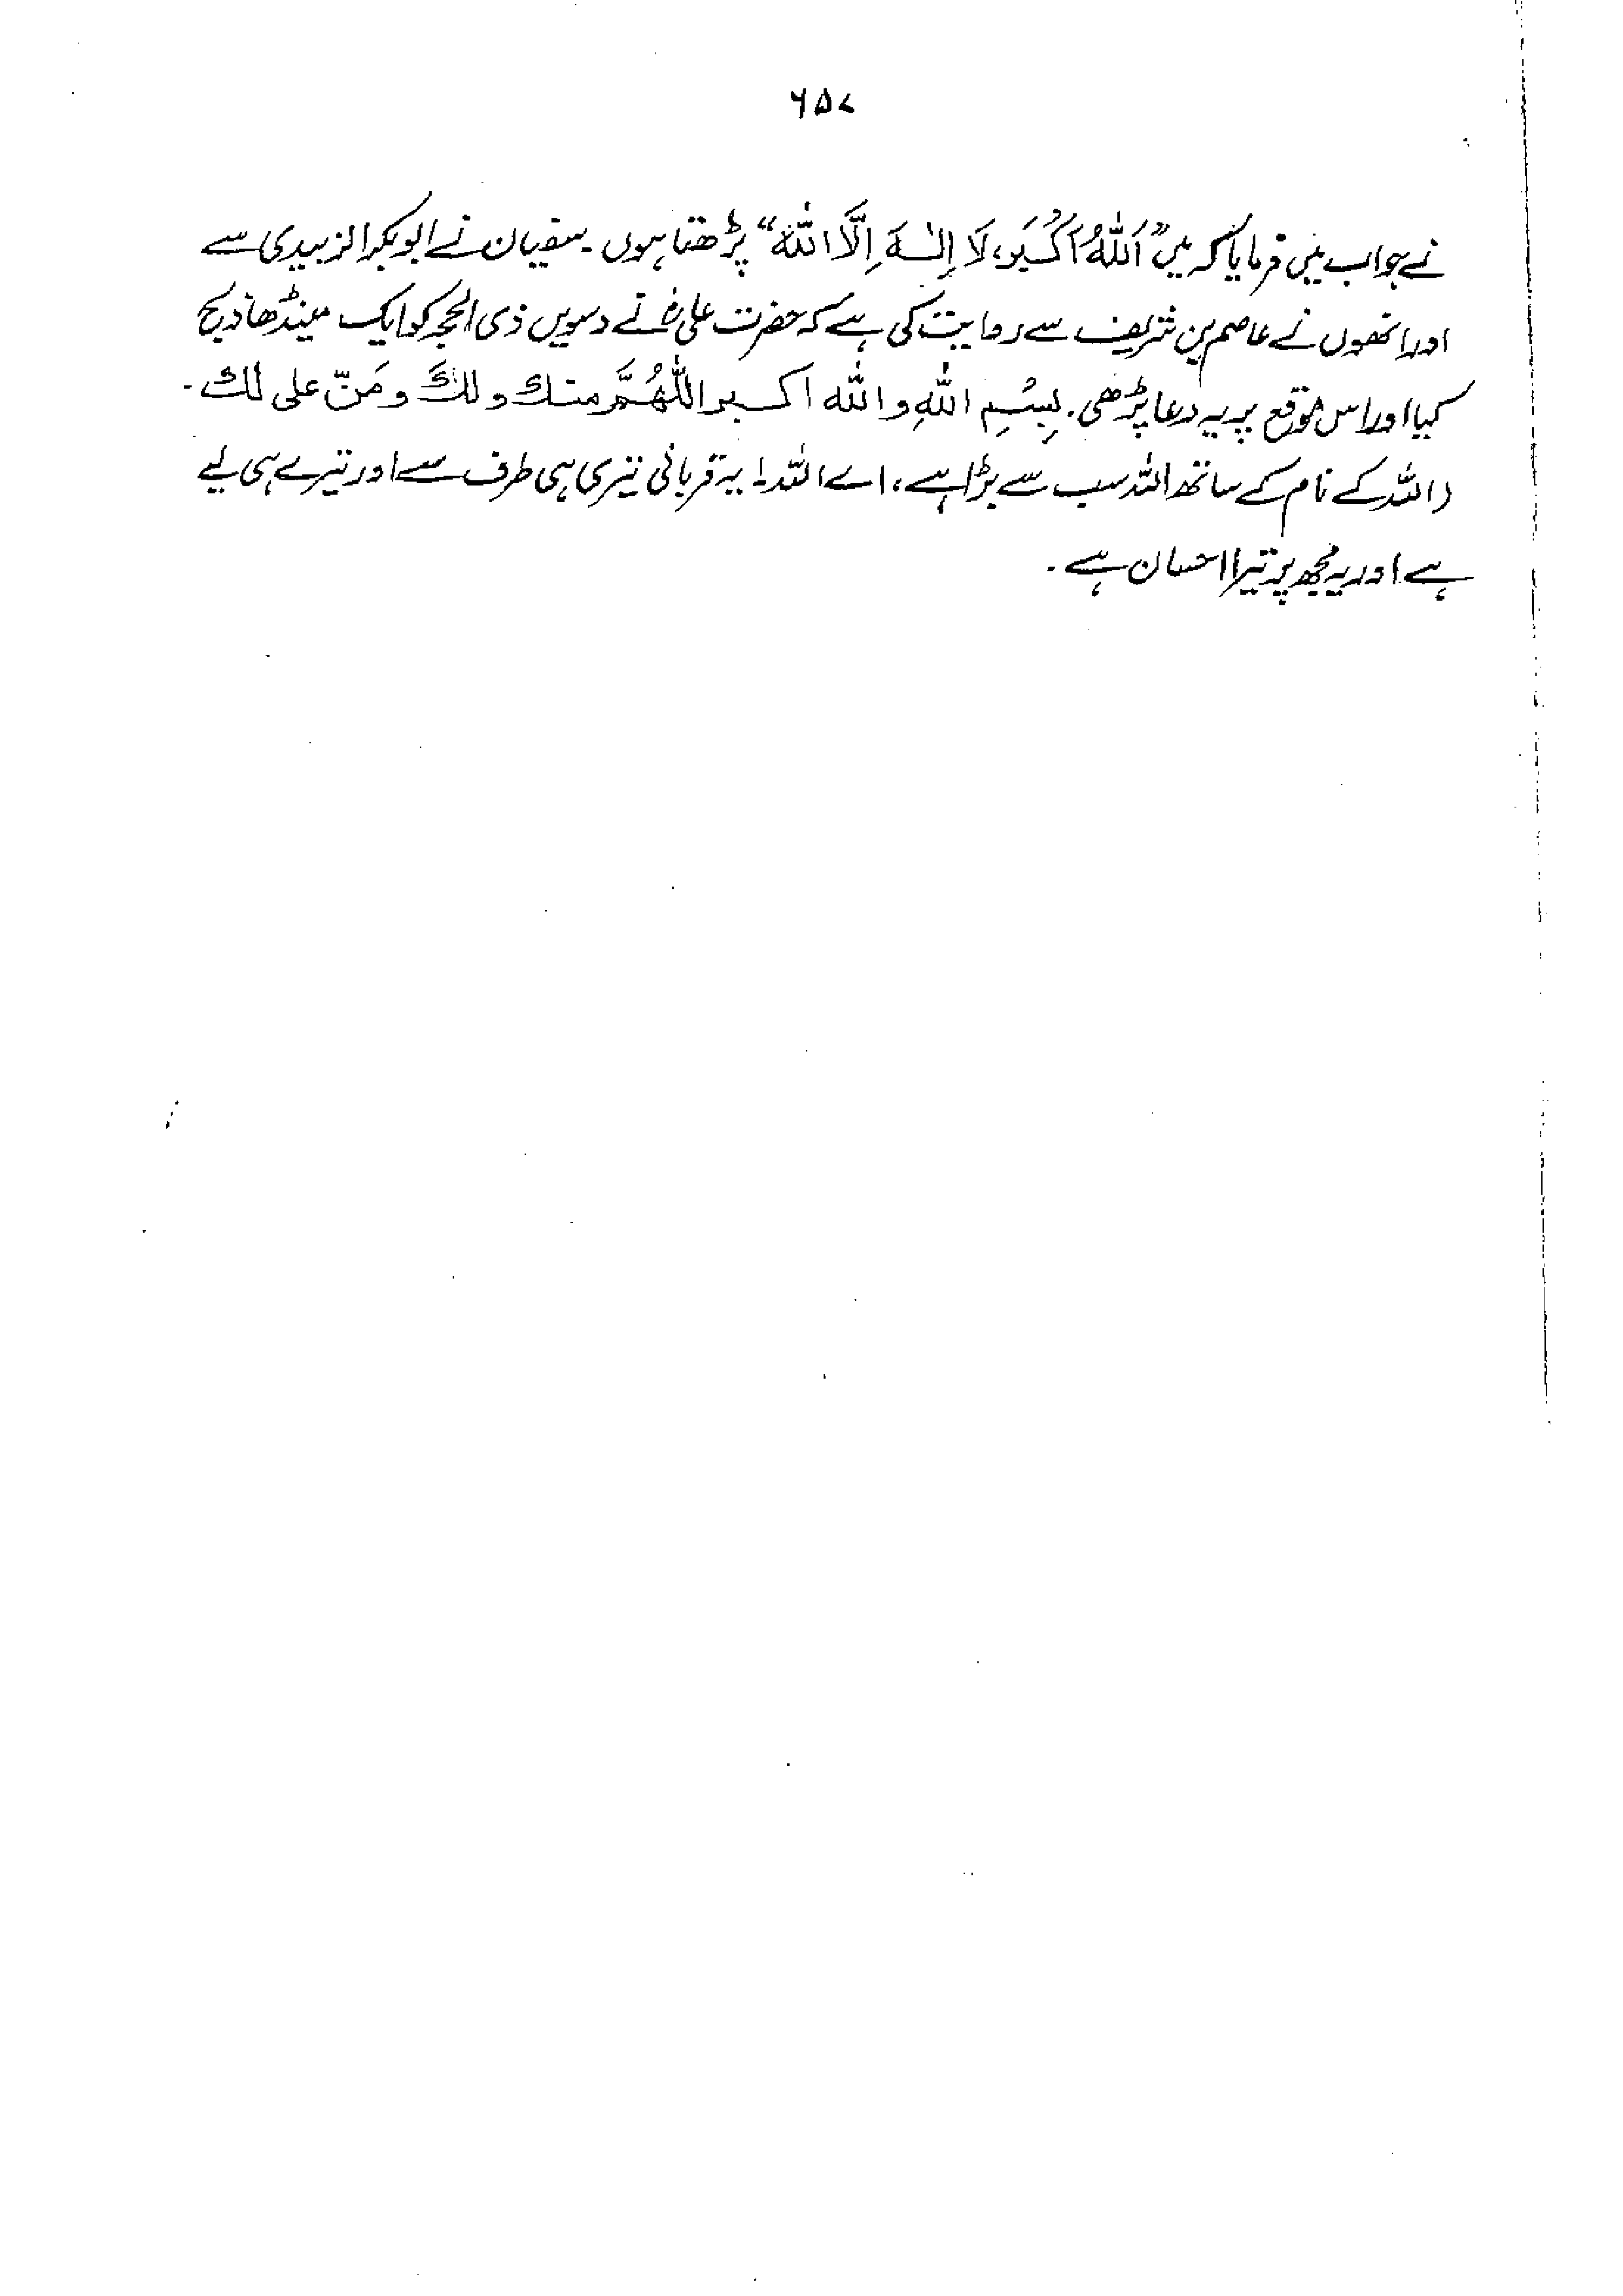 ۶۵۷
نے جواب میں فرمایا کہ میں "اَللّٰهُ اَكْبَر، لَا اِلٰـهَ اِلَّا اللّٰهُ" پڑھتا ہوں۔ سفیان نے ابوبکر الزبیدی سے
اور انھوں نے عاصم بن شریف سے روایت کی ہے کہ حضرت علیؓ نے دسویں ذی الحجہ کو ایک مینڈھا ذبح
کیا اور اس موقع پر یہ دعا پڑھی۔ بِسْمِ اللّٰهِ و اللّٰه اكـبر اللّٰهُمَّ منك ولكَ و مَنّ على لك۔
(اللہ کے نام کے ساتھ اللہ سب سے بڑا ہے، اے اللہ! یہ قربانی تیری ہی طرف سے اور تیرے ہی لیے
ہے اور یہ مجھ پر تیرا احسان ہے۔